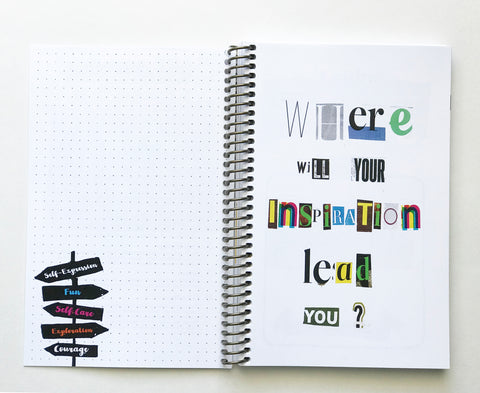 Self-Expression
Fun
Self-Care
Exploration
Courage
WHere
will YOUR
INSPIRATION
lead
YOU ?